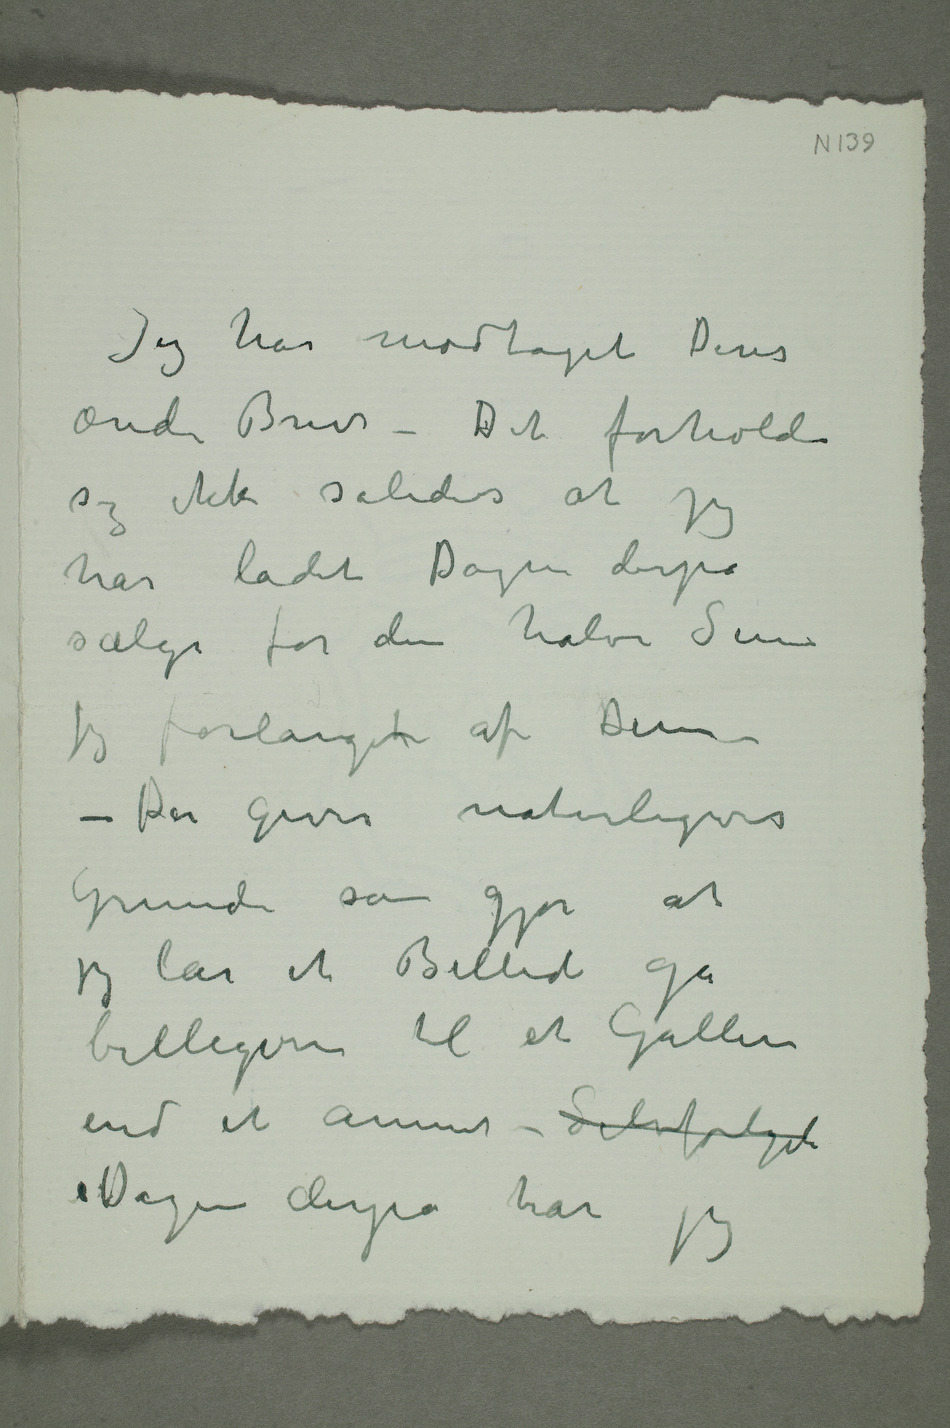 N 139
Jeg har modtaget Deres
ærede Brev – Det forholder
sig ikke således at jeg
har ladet Dagen derpå
sælge for den halve Sum
jeg forlangte af Dem –
– Der gives naturligvis
Grunde som gjør at
jeg lar et Billede gå
billigere til et Galleri
end et annet – Selvfølgelig
Dagen derpå har jeg